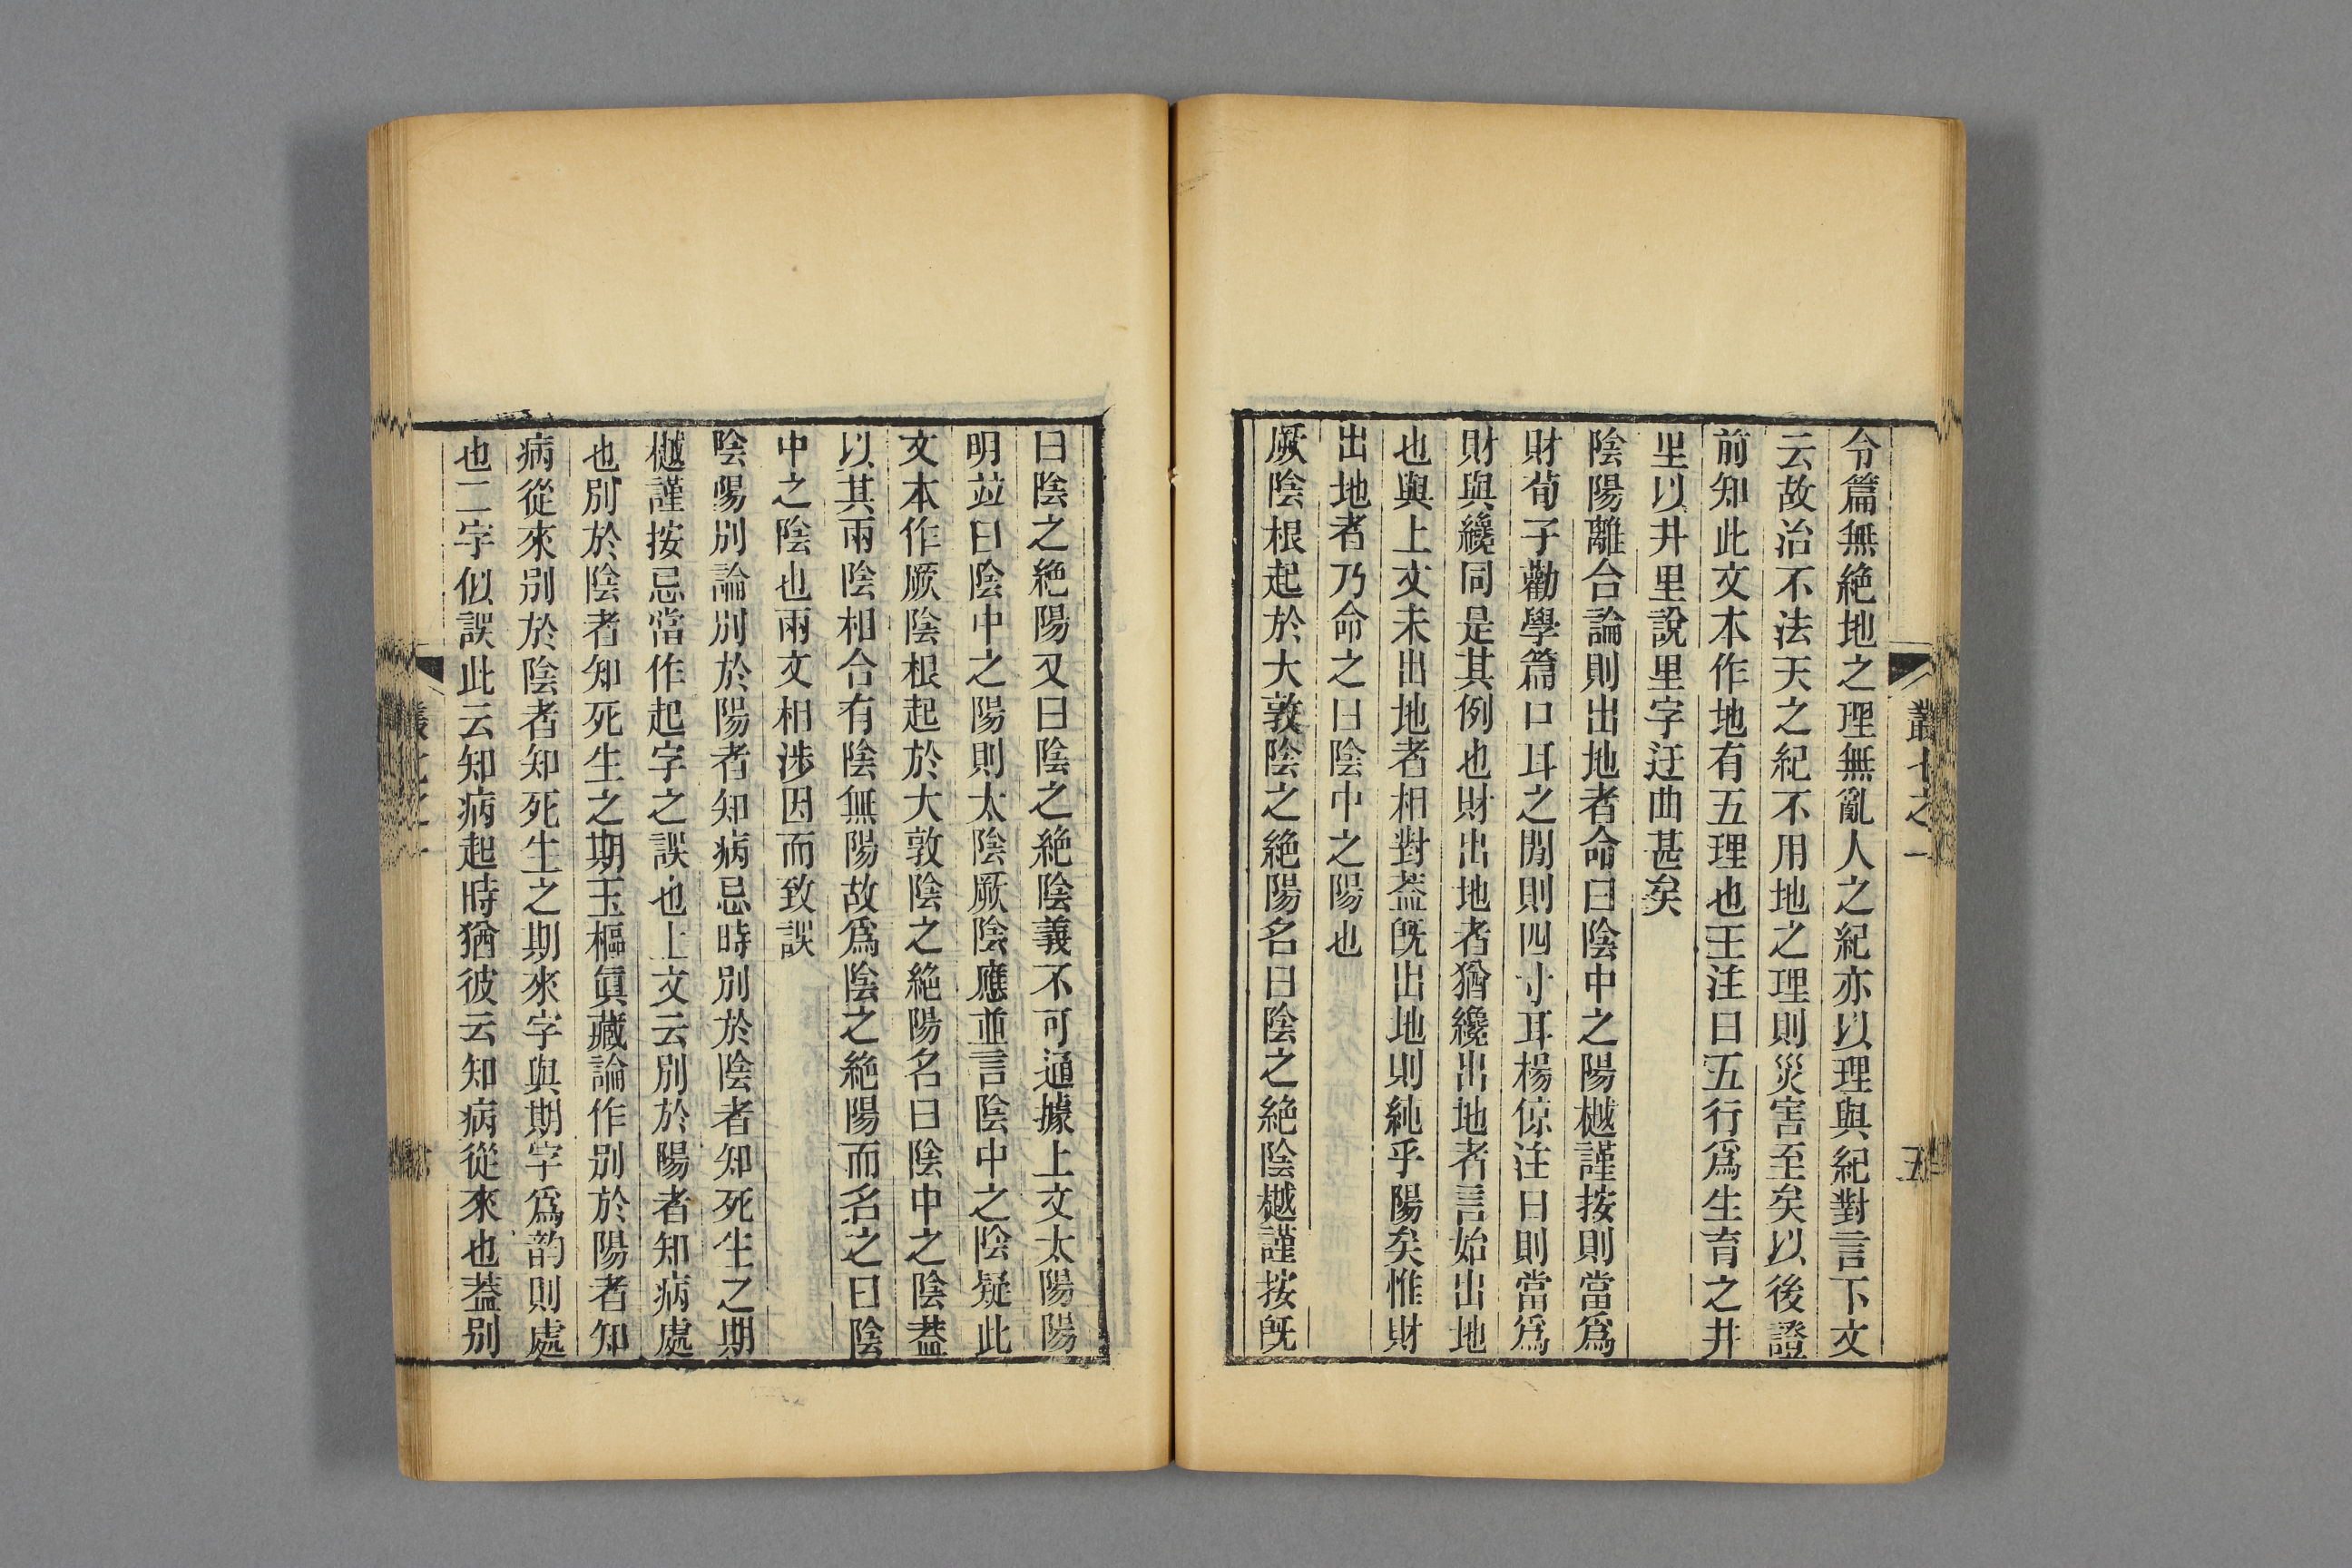 叢七之一
五
令篇無絶地之理無亂人之紀亦以理與紀對言下文
云故治不法天之紀不用地之理則災害至矣以後證
前知此文本作地有五理也王注曰五行爲生育之井
里以井里說里字迂曲甚矣
陰陽離合論則出地者命曰陰中之陽樾謹按則當爲
財荀子勸學篇口耳之閒則四寸耳楊倞注曰則當爲
財與纔同是其例也財出地者猶纔出地者言始出地
也與上文未出地者相對葢旣出地則純乎陽矣惟財
出地者乃命之曰陰中之陽也
厥陰根起於大敦陰之絶陽名曰陰之絶陰樾謹按旣
曰陰之絶陽又曰陰之絶陰義不可通據上文太陽陽
明竝曰陰中之陽則太陰厥陰應並言陰中之陰疑此
文本作厥陰根起於大敦陰之絶陽名曰陰中之陰葢
以其兩陰相合有陰無陽故爲陰之絶陽而名之曰陰
中之陰也兩文相涉因而致誤
陰陽別論別於陽者知病忌時別於陰者知死生之期
樾謹按忌當作起字之誤也上文云別於陽者知病處
也別於陰者知死生之期玉樞眞藏論作別於陽者知
病從來別於陰者知死生之期來字與期字爲韵則處
也二字似誤此云知病起時猶彼云知病從來也葢別